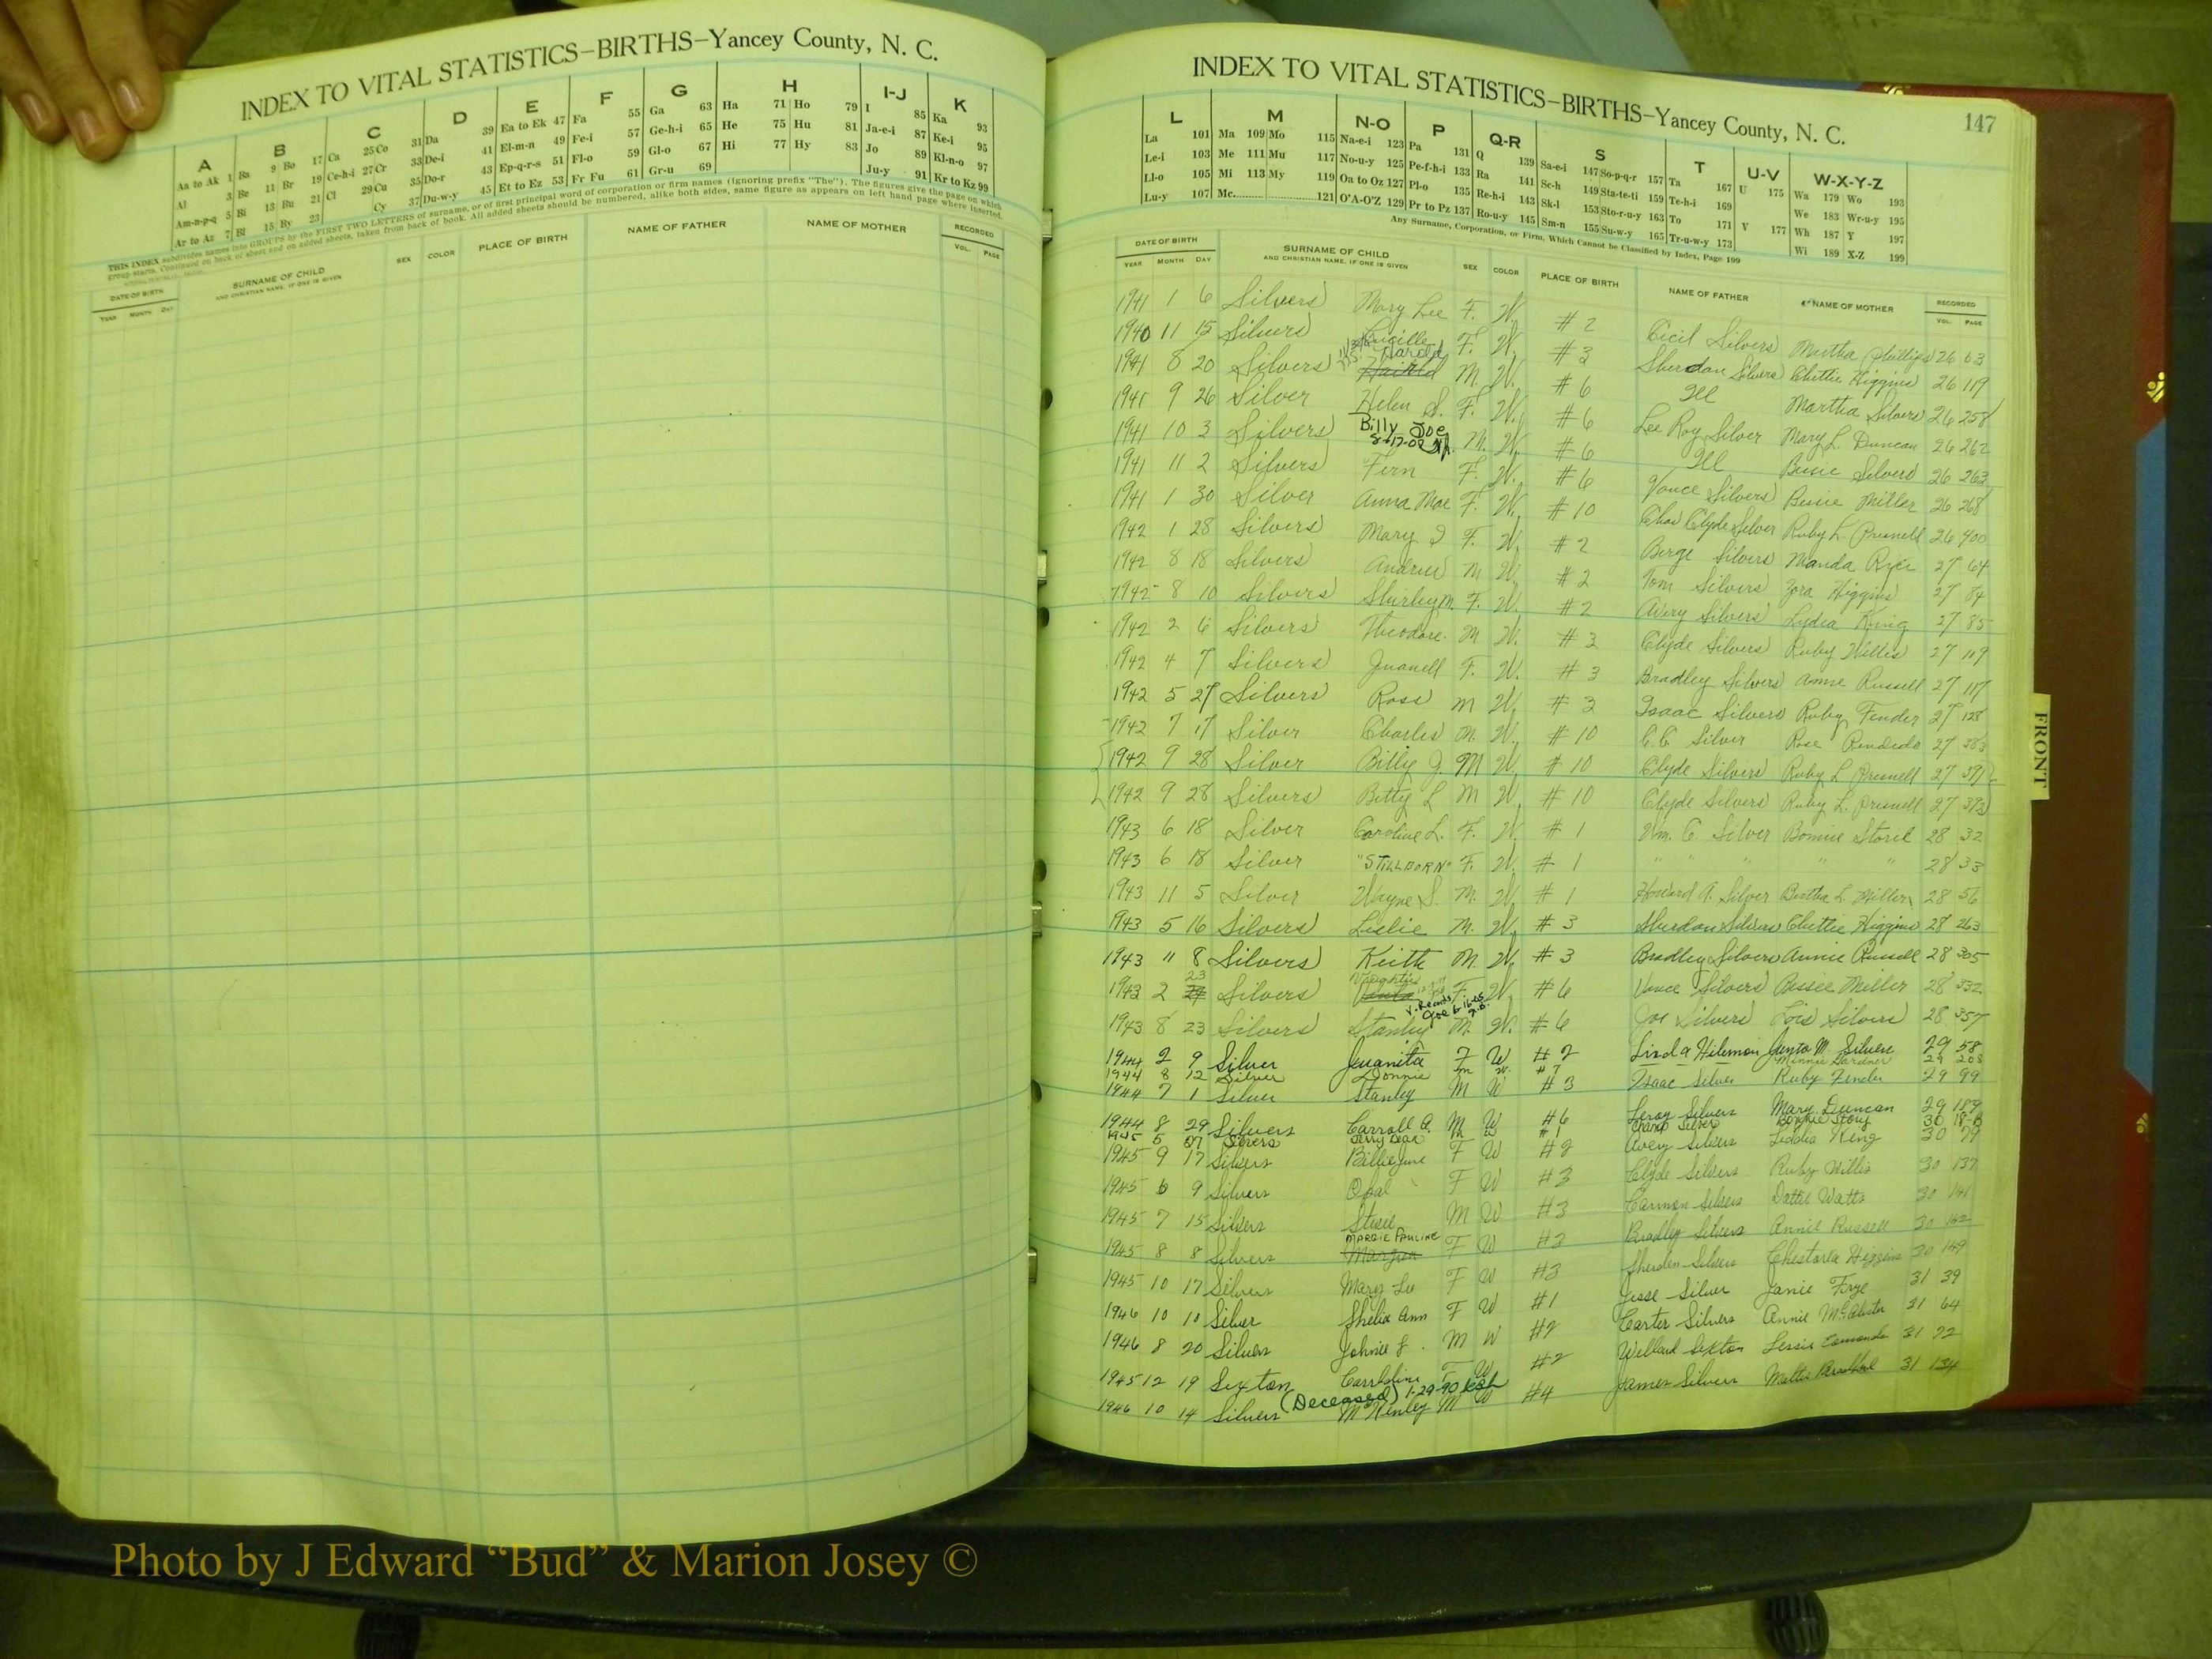 INDEX TO VITAL STATISTICS–BIRTHS–Yancey County, N. C.
A B C D E F G H I-J K
Aa to Ak 1 Ba 9 Bo 17 Ca 25 Co 31 Da 39 Ea to Ek 47 Fa 55 Ga 63 Ha 71 Ho 79 I 85 Ka 93
Al 3 Be 11 Br 19 Ce-h-i 27 Cr 33 De-i 41 El-m-n 49 Fe-i 57 Ge-h-i 65 He 75 Hu 81 Ja-e-i 87 Ke-i 95
Am-n-p-q 5 Bi 13 Bu 21 Cl 29 Cu 35 Do-r 43 Ep-q-r-s 51 Fl-o 59 Gl-o 67 Hi 77 Hy 83 Jo 89 Kl-n-o 97
Ar to Az 7 Bl 15 By 23 Cy 37 Du-w-y 45 Et to Ez 53 Fr Fu 61 Gr-u 69 Ju-y 91 Kr to Kz 99
THIS INDEX subdivides names into GROUPS by the FIRST TWO LETTERS of surname, or of first principal word of corporation or firm names (ignoring prefix "The"). The figures give the page on which
group starts. Continued on back of sheet and on added sheets, taken from back of book. All added sheets should be numbered, alike both sides, same figure as appears on left hand page where inserted.
DATE OF BIRTH SURNAME OF CHILD SEX COLOR PLACE OF BIRTH NAME OF FATHER NAME OF MOTHER RECORDED
YEAR MONTH DAY AND CHRISTIAN NAME, IF ONE IS GIVEN VOL. PAGE
INDEX TO VITAL STATISTICS–BIRTHS–Yancey County, N. C. 147
L M N-O P Q-R S T U-V W-X-Y-Z
La 101 Ma 109 Mo 115 Na-e-i 123 Pa 131 Q 139 Sa-e-i 147 So-p-q-r 157 Ta 167 U 175 Wa 179 Wo 193
Le-i 103 Me 111 Mu 117 No-u-y 125 Pe-f-h-i 133 Ra 141 Sc-h 149 Sta-te-ti 159 Te-h-i 169 We 183 Wr-u-y 195
Ll-o 105 Mi 113 My 119 Oa to Oz 127 Pl-o 135 Re-h-i 143 Sk-l 153 Sto-r-u-y 163 To 171 V 177 Wh 187 Y 197
Lu-y 107 Mc 121 O'A-O'Z 129 Pr to Pz 137 Ro-u-y 145 Sm-n 155 Su-w-y 165 Tr-u-w-y 173 Wi 189 X-Z 199
Any Surname, Corporation, or Firm, Which Cannot be Classified by Index, Page 199
DATE OF BIRTH SURNAME OF CHILD SEX COLOR PLACE OF BIRTH NAME OF FATHER NAME OF MOTHER RECORDED
YEAR MONTH DAY AND CHRISTIAN NAME, IF ONE IS GIVEN VOL. PAGE
1941 1 6 Silvers Mary Lee F. W. #2 Cecil Silvers Martha Phillips 26 63
1940 11 15 Silvers Lucille F. W. #3 Sherdan Silvers Chittie Higgins 26 119
1941 8 20 Silvers Harold M. W. #6 Ill Martha Silvers 26 258
1941 9 26 Silver Helen S. F. W. #6 Lee Roy Silver Mary L. Duncan 26 262
1941 10 3 Silvers Billy Joe 8-17-02 M. W. #6 Ill Bessie Silvers 26 263
1941 11 2 Silvers Fern F. W. #6 Vance Silvers Bessie Miller 26 268
1941 1 30 Silver Anna Mae F. W. #10 Clyde Silver Ruby L. Presnell 26 400
1942 1 28 Silvers Mary F. W. #2 Berge Silvers Manda 27 64
1942 8 18 Silvers Andrew M W. #2 Tom Silvers Zora Higgins 27 84
1942 8 10 Silvers Shirley M. F. W. #2 Avery Silvers Lydia King 27 85
1942 2 6 Silvers Theodore M W. #3 Clyde Silvers Ruby Willis 27 109
1942 4 7 Silvers Juanell F. W. #3 Bradley Silvers Annie Russell 27 117
1942 5 27 Silvers Ross M W. #3 Isaac Silvers Ruby Fender 27 128
1942 7 17 Silver Charles M. W. #10 C.C. Silver Rose 27 383
1942 9 28 Silver Billy J. M W. #10 Clyde Silvers Ruby L Presnell 27 391
1942 9 28 Silvers Betty L M W. #10 Clyde Silvers Ruby L. Presnell 27
1943 6 18 Silver Caroline L. F. W. #1 Wm. C. Silver Bonnie 28 32
1943 6 18 Silver "STILLBORN" F. W. #1 " " " " " 28 33
1943 11 5 Silver Wayne S. M. W. #1 Howard A. Silver Bertha L. Miller 28 56
1943 5 16 Silvers Leslie M. W. #3 Sherdan Silvers Chittie Higgins 28 263
1943 11 8 Silvers Keith M. W. #3 Bradley Silvers Annie Russell 28 305
1943 2 23 Silvers F. W. #6 Vance Silvers Bessie Miller 28 332
1943 8 23 Silvers Stanley M. W. #6 Joe Silvers Lois Silvers 28 357
1944 2 9 Silver Juanita F W #2 M. Silvers 29 58
1944 8 12 Silver Donnie m w. #7 Minnie Gardner 29 208
1944 7 1 Silver Stanley M W #3 Isaac Silver Ruby Fender 29 99
1944 8 29 Silvers Carroll A. M W #6 Leroy Silvers Mary Duncan 29 189
1945 5 27 Silvers Jerry Dean M W #1 Champ Silver Bonnie Story 30 18-B
1945 9 17 Silvers Billie June F W #2 Avery Silvers Liddia King 30 79
1945 6 9 Silvers Opal F W #3 Clyde Silvers Ruby Willis 30 137
1945 7 15 Silvers M W #3 Carmon Silvers Dattie Watts 30 141
1945 8 8 Silvers MARGIE PAULINE F W #3 Bradley Silvers Annie Russell 30 142
1945 10 17 Silvers Mary Lu F W #3 Sherden Silvers Higgins 30 149
1946 10 10 Silver Shelia Ann F W #1 Jesse Silver Janie Frye 31 39
1946 8 20 Silvers Johnie J. M W #2 Carter Silvers Annie 31 64
1945 12 19 Sexton F W #2 Willard Sexton Lessie Edmonds 31 72
(Deceased) 1-29-90
1946 10 14 Silvers McKenley M W #4 James Silvers Mattie 31 134
FRONT
Photo by J Edward “Bud” & Marion Josey ©